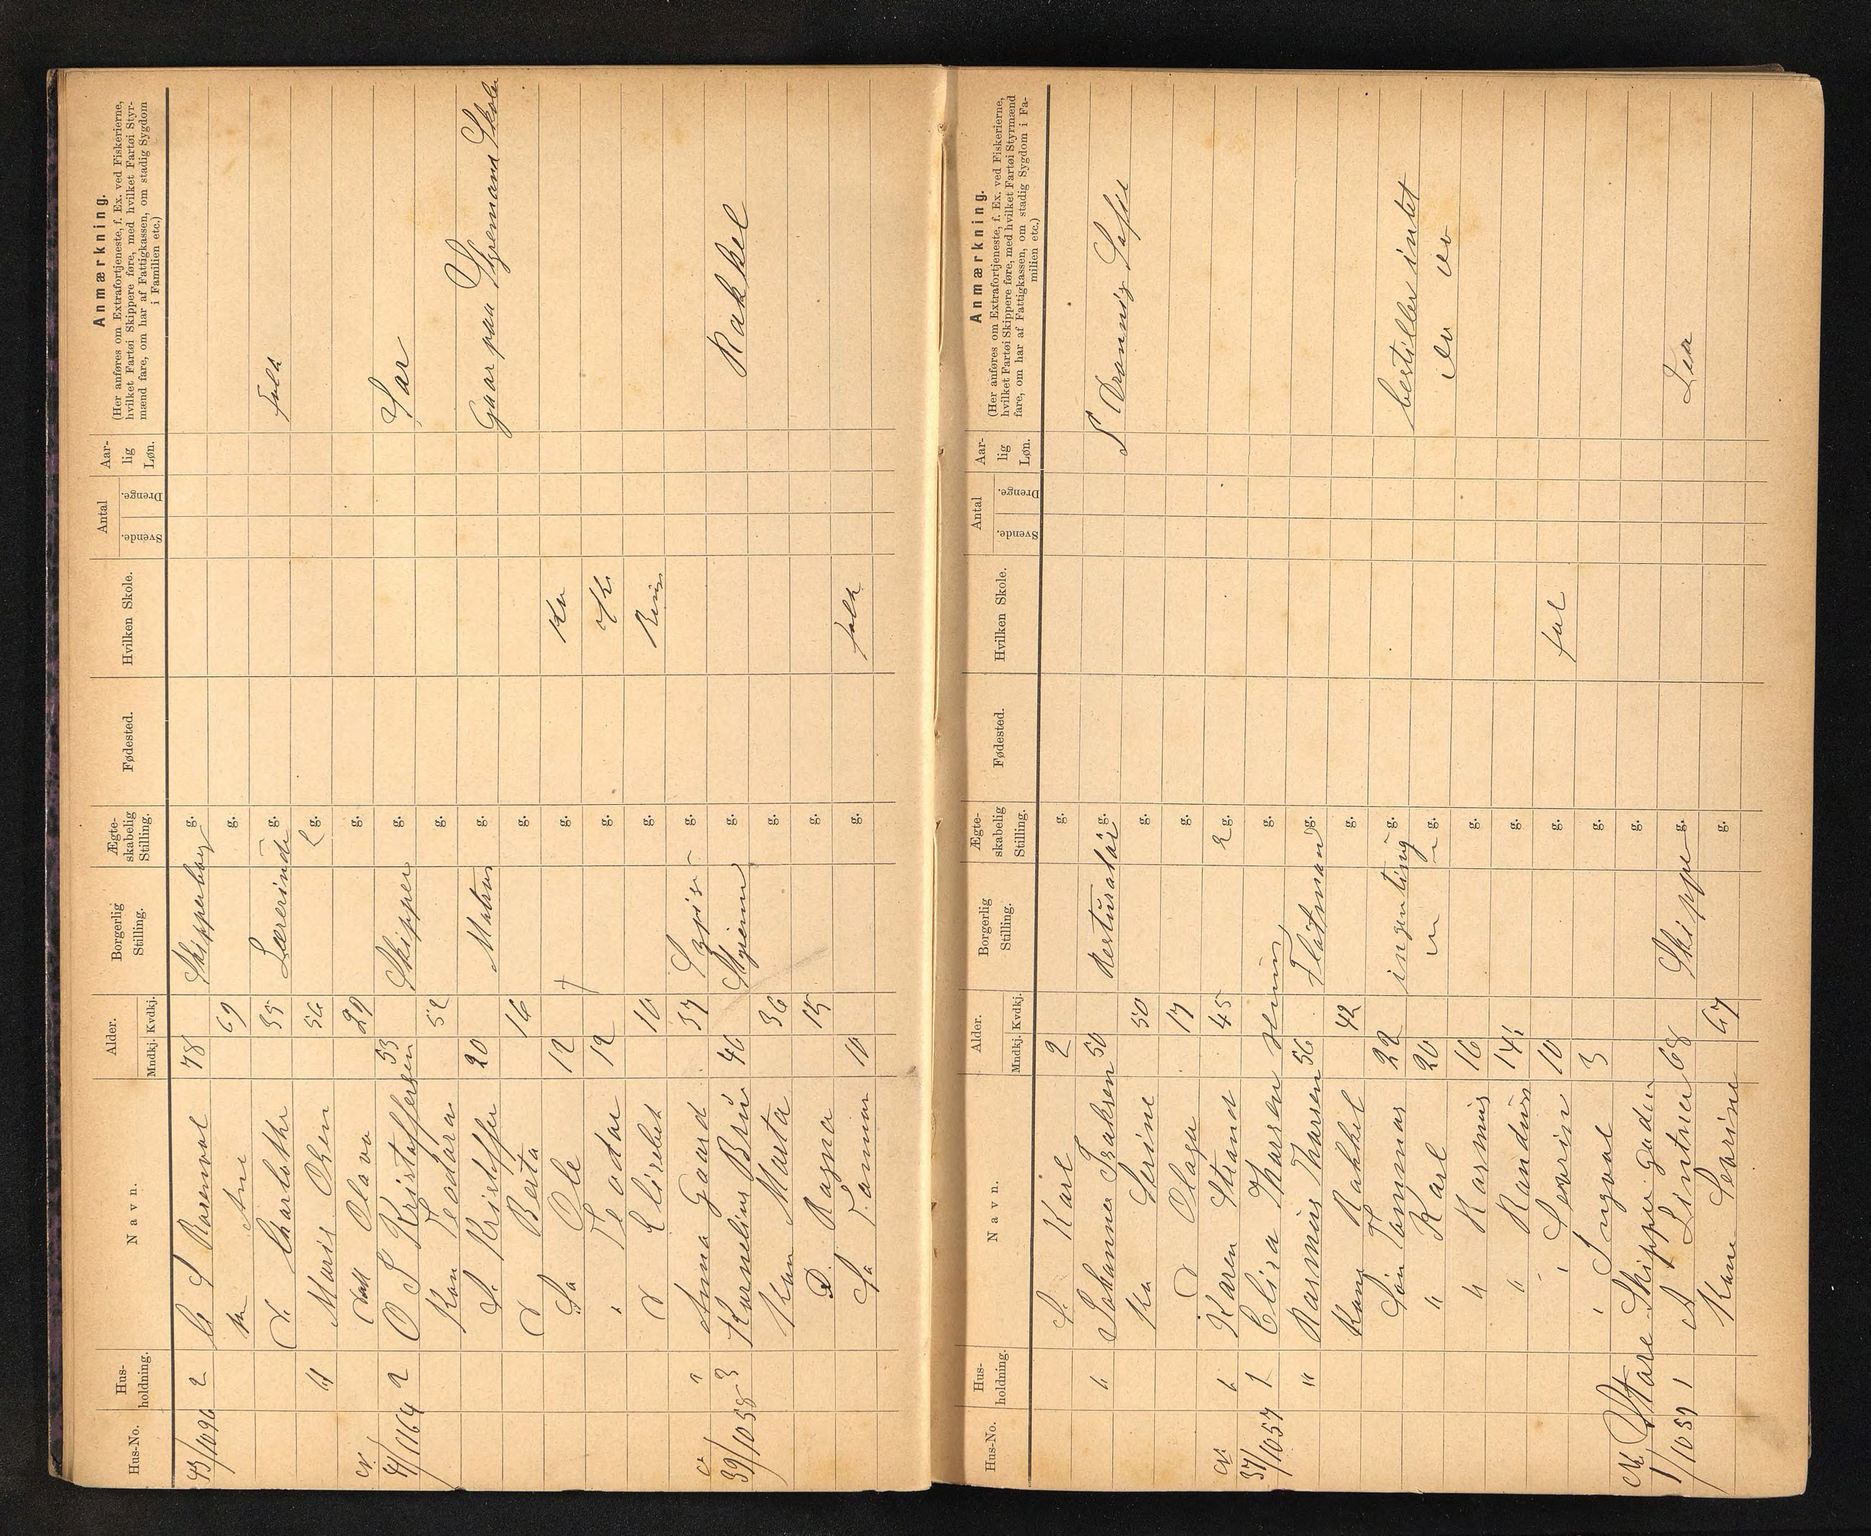 Hus-No. Hus-holdning. Navn. Alder. Mndkj. Kvdkj. Borgerlig Stilling. Ægte-skabelig Stilling. Fødested. Hvilken Skole. Antal Svende. Drenge. Aar-lig Løn. Anmærkning.
(Her anføres om Extrafortjeneste, f. Ex. ved Fiskerierne, hvilket Fartøi Skippere føre, med hvilket Fartøi Styr-mænd fare, om har af Fattigkassen, om stadig Sygdom i Familien etc.)
43/1096 2 S Rosenvol 78 Skipperborg g.
Ane 69 g.
d. Charlothe 35 Lærerinde g. folk
" Marie Olsen 56 E g.
Datt Olava 29 g.
41/1164 2 O T Kristoffersen 53 Skipper g.
Kon Teodora 52 g.
S. Kristoffer 20 Matros g. Gaar paa Styremand Skolen
d Berta 16 g.
Sø Ole 12 † g.
" Teodor 12 g.
d Elisebet 10 g.
" Anna Gaard 37 g.
39/1058 3 Kornelius Brú 46 Styrem g. Rakkel
Kon Marta 36 g.
D. Ragna 15 g.
Sø Tommas 10 g. folk
Hus-No. Hus-holdning. Navn. Alder. Mndkj. Kvdkj. Borgerlig Stilling. Ægte-skabelig Stilling. Fødested. Hvilken Skole. Antal Svende. Drenge. Aar-lig Løn. Anmærkning.
(Her anføres om Extrafortjeneste, f. Ex. ved Fiskerierne, hvilket Fartøi Skippere føre, med hvilket Fartøi Styrmænd fare, om har af Fattigkassen, om stadig Sygdom i Fa-milien etc.)
S. Karl 2 g.
" Johannes Isaksen 50 Resturatør g. S Dronnig Sofie
Ko Serine 50 g.
d Olaga 17 g.
" Karen Strand 45 E g.
37/1057 1 Elisa Thorsen g.
" Rasmus Thorsen 56 Flotman g.
Kone Rakkel 42 g.
Søn Tommas 22 ingenting g. bestiller intet
" Karl 20 g. do do
" Rasmus 16 g.
" Randius 14 g.
" Sevrin 10 g. fol
" Ingval 3 g.
Store Skipper gaden g.
1/1059 1 A Lintner 68 Skipper g.
Kone Sevrine 67 g.